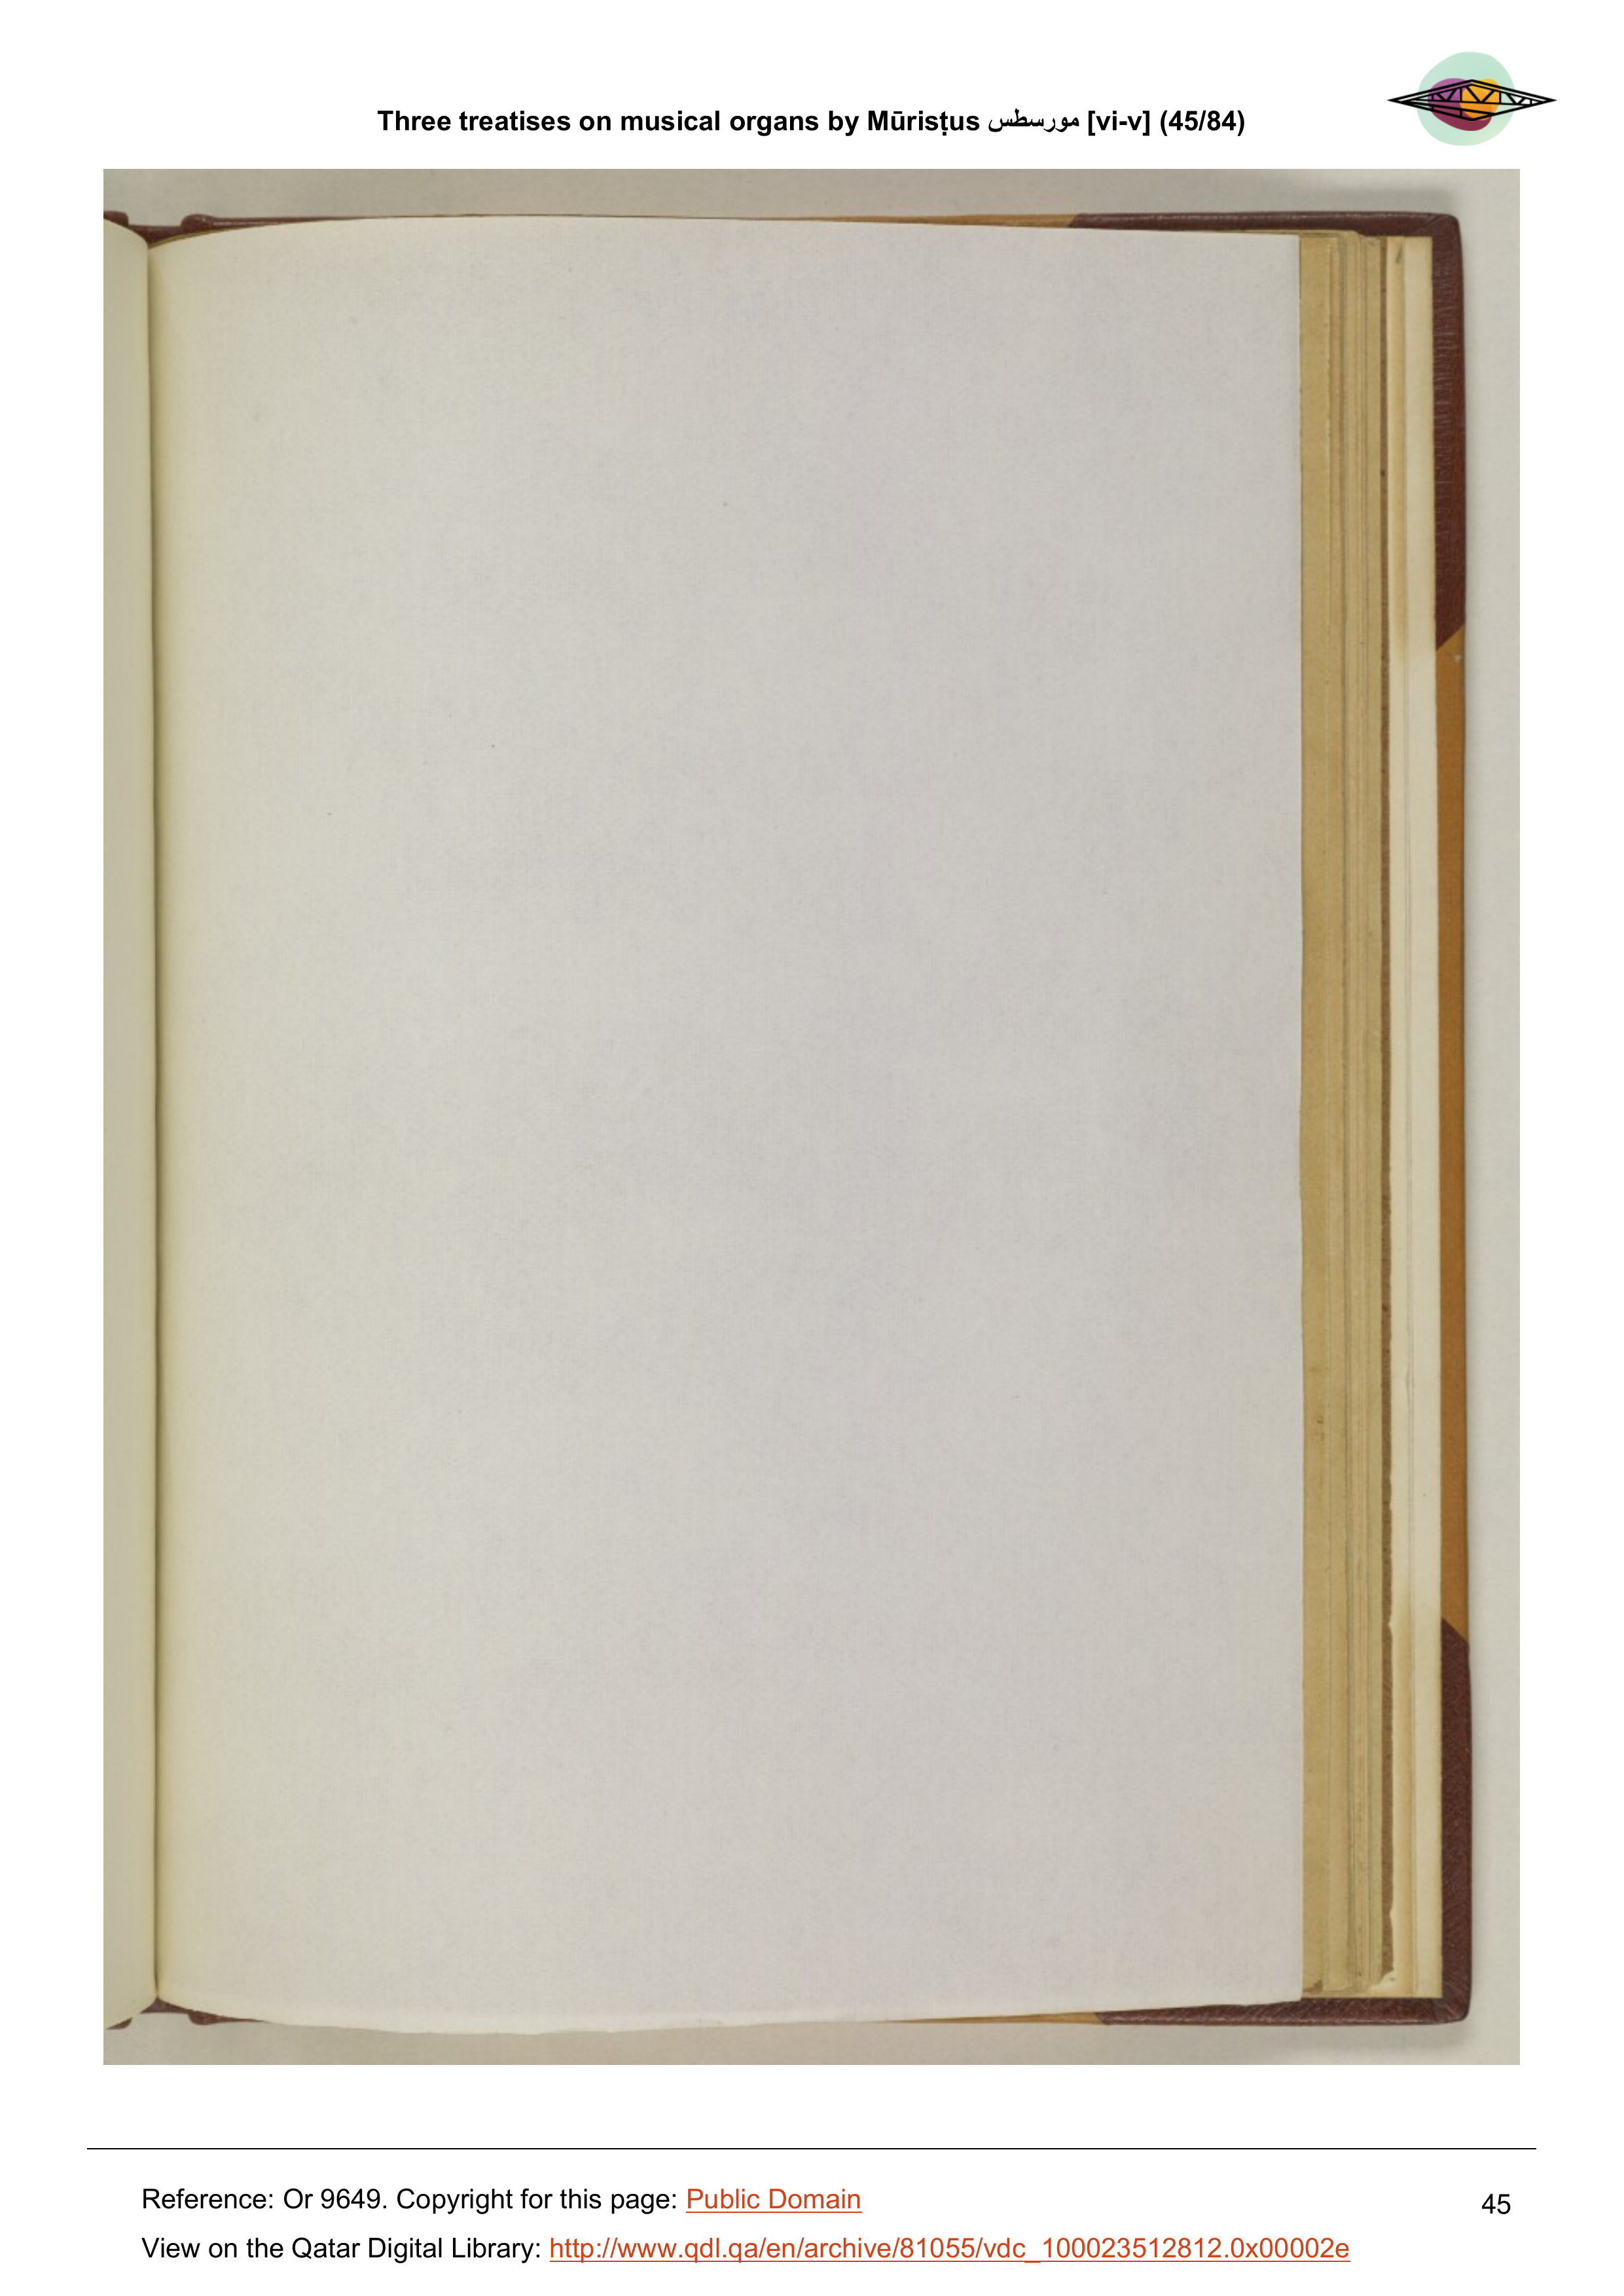 Three treatises on musical organs by Mūrisṭus مورسطس [vi-v] (45/84)
Reference: Or 9649. Copyright for this page: Public Domain
45
View on the Qatar Digital Library: http://www.qdl.qa/en/archive/81055/vdc_100023512812.0x00002e